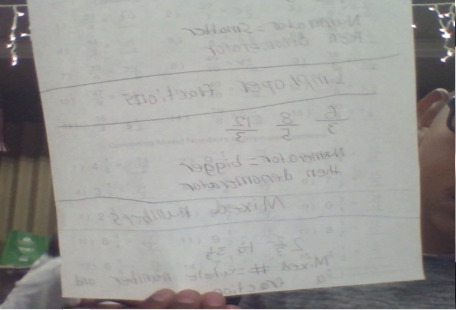 Numerator = Smaller
then denomerator
Improper fractions
6/3 8/5 12/3
Numerator = bigger
then denomerator
Mixede numbers
Mixed # = whole number and
a fraction